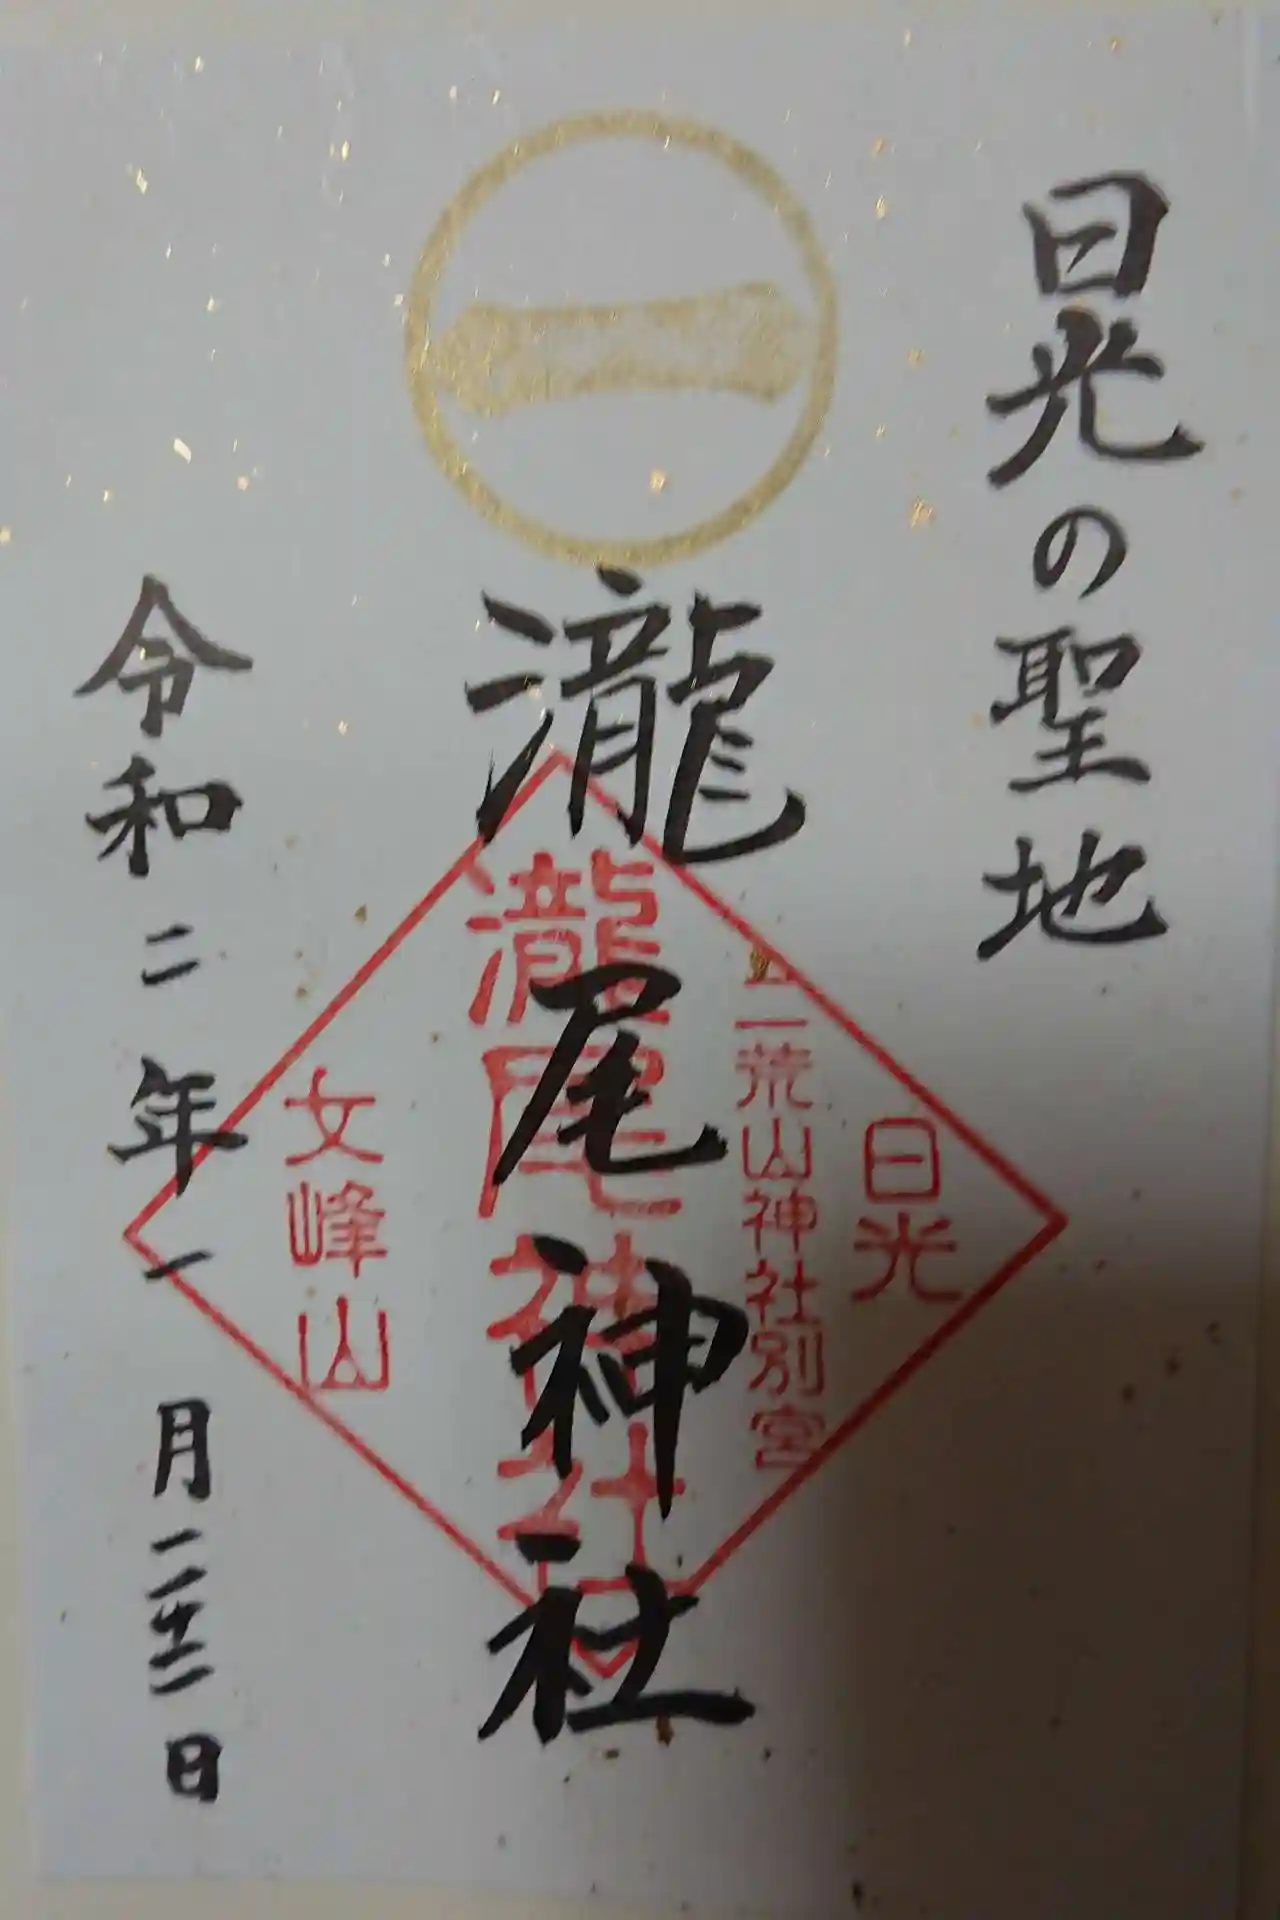 日光の聖地
一
瀧尾神社
令和二年一月二十二日
日光
二荒山神社別宮
瀧尾神社
女峰山